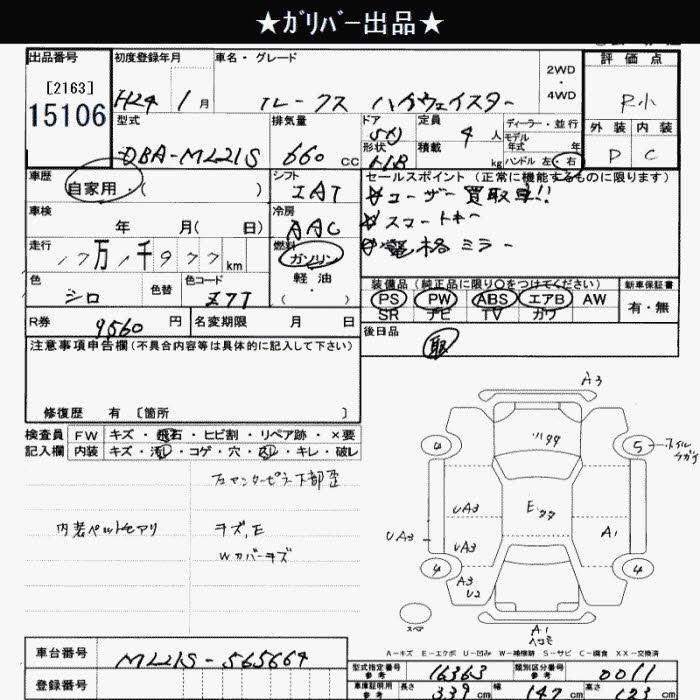 ★ｶﾞﾘﾊﾞｰ出品★
出品番号
[2163]
15106
初度登録年月
H24 1月
車名・グレード
ルークス ハイウェイスター
2WD
・
4WD
評価点
R小
外装 内装
D C
型式
DBA-ML21S
排気量
660 CC
ドア
5D
形状
HB
定員
4人
積載
kg
ディーラー・並行
モデル
年式 年
ハンドル 左・右
車歴
自家用・( )
シフト
IAT
車検
年 月( 日)
冷房
AAC
走行
17万1千977 km
燃料
ガソリン
軽油
( ・ )
色
シロ
色替
色コード
Z7T
R券
9560 円
名変期限 月 日
セールスポイント (正常に機能するものに限ります)
☆ユーザー買取車!!
☆スマートキー
☆電格ミラー
装備品 (純正品に限り○をつけてください)
PS PW ABS エアB AW
SR ナビ TV カワ
新車保証書
有・無
後日品
取
注意事項申告欄(不具合内容等は具体的に記入して下さい)
修復歴 有 〔箇所 〕
検査員
記入欄
FW キズ・飛石・ヒビ割・リペア跡・×要
内装 キズ・汚レ・コゲ・穴・スレ・キレ・破レ
右センターピラー下部歪
内装ペットセアリ
キズ,E
Wカバーキズ
A3
4
5
ホイル
UA3
UA3
UA3
A1
4
4
A3
U2
スペア
A1
A-キズ E-エクボ U-凹み W-補修跡 S-サビ C-腐食 XX-交換済
車台番号
ML21S-565664
登録番号
型式指定番号
参考
16363
類別区分番号
参考
0011
車庫証明用
参考
長さ
339 cm
幅
147 cm
高さ
cm